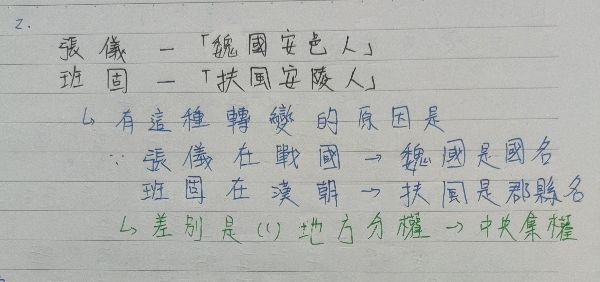 2.
張儀 — 「魏國安邑人」
班固 — 「扶風安陵人」
↳ 有這種轉變的原因是
∵ 張儀在戰國 → 魏國是國名
班固在漢朝 → 扶風是郡縣名
↳ 差別是 (1) 地方分權 → 中央集權